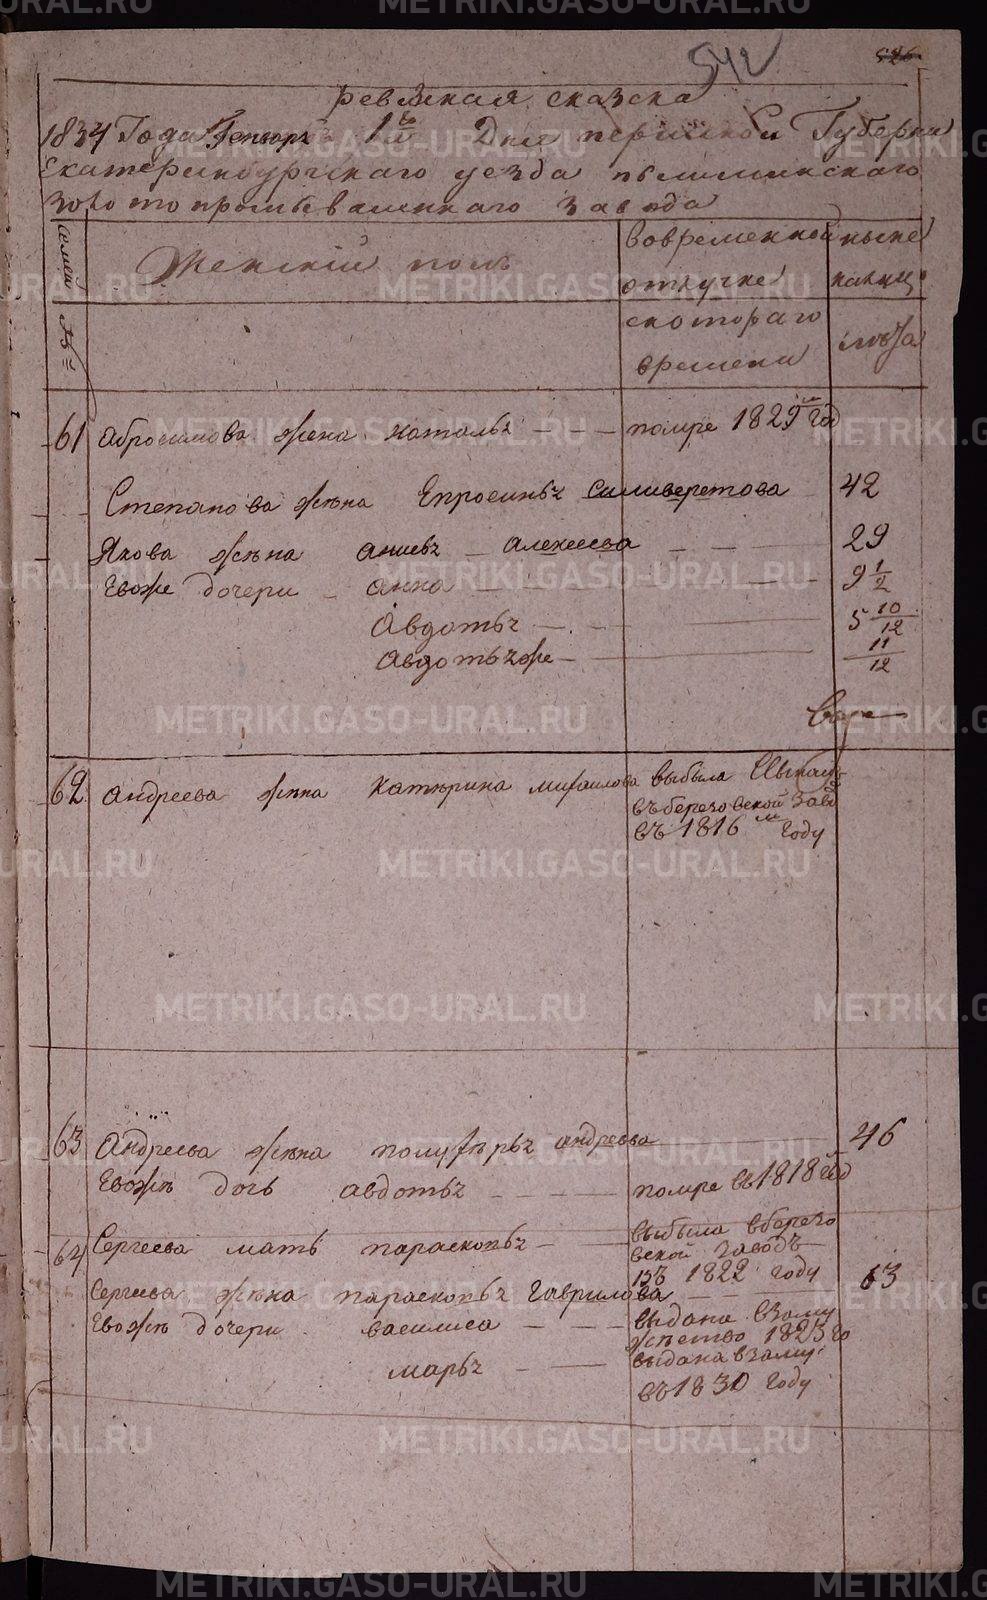 542
526
ревизкая сказка
1834 Года Генворя 1го Дня пермской Губерни
Екатеринбургскаго уезда пышминскаго
золотопромываленнаго завода
семей
№
Женский полъ
вовременной
отлучке
ныне
налицо
скотораго
времени
лѣта
61 Абросимова жена наталья — помре 1829 год
Степанова жѣна Епросинья Силиверстова 42
Якова жѣна анисья Алексеева 29
Евоже дочери анна 9 1/2
Авдотья 5 10/12
Авдотья же 11/12
62 андреева жѣна катерина михаилова выбыла
въ березовской заво
въ 1816 м году
63 Андреева жѣна андреева 46
Евожѣ дочь авдотья помре въ 1818 год
64 Сергеева мать парасковья выбыла вберезо
вской заводъ
въ 1822 году
Сергиева жѣна парасковья Гаврилова 63
Евожѣ дочери василиса выдана взаму
жѣство 1825 го
марья выдана взаму
въ 1830 году
METRIKI.GASO-URAL.RU